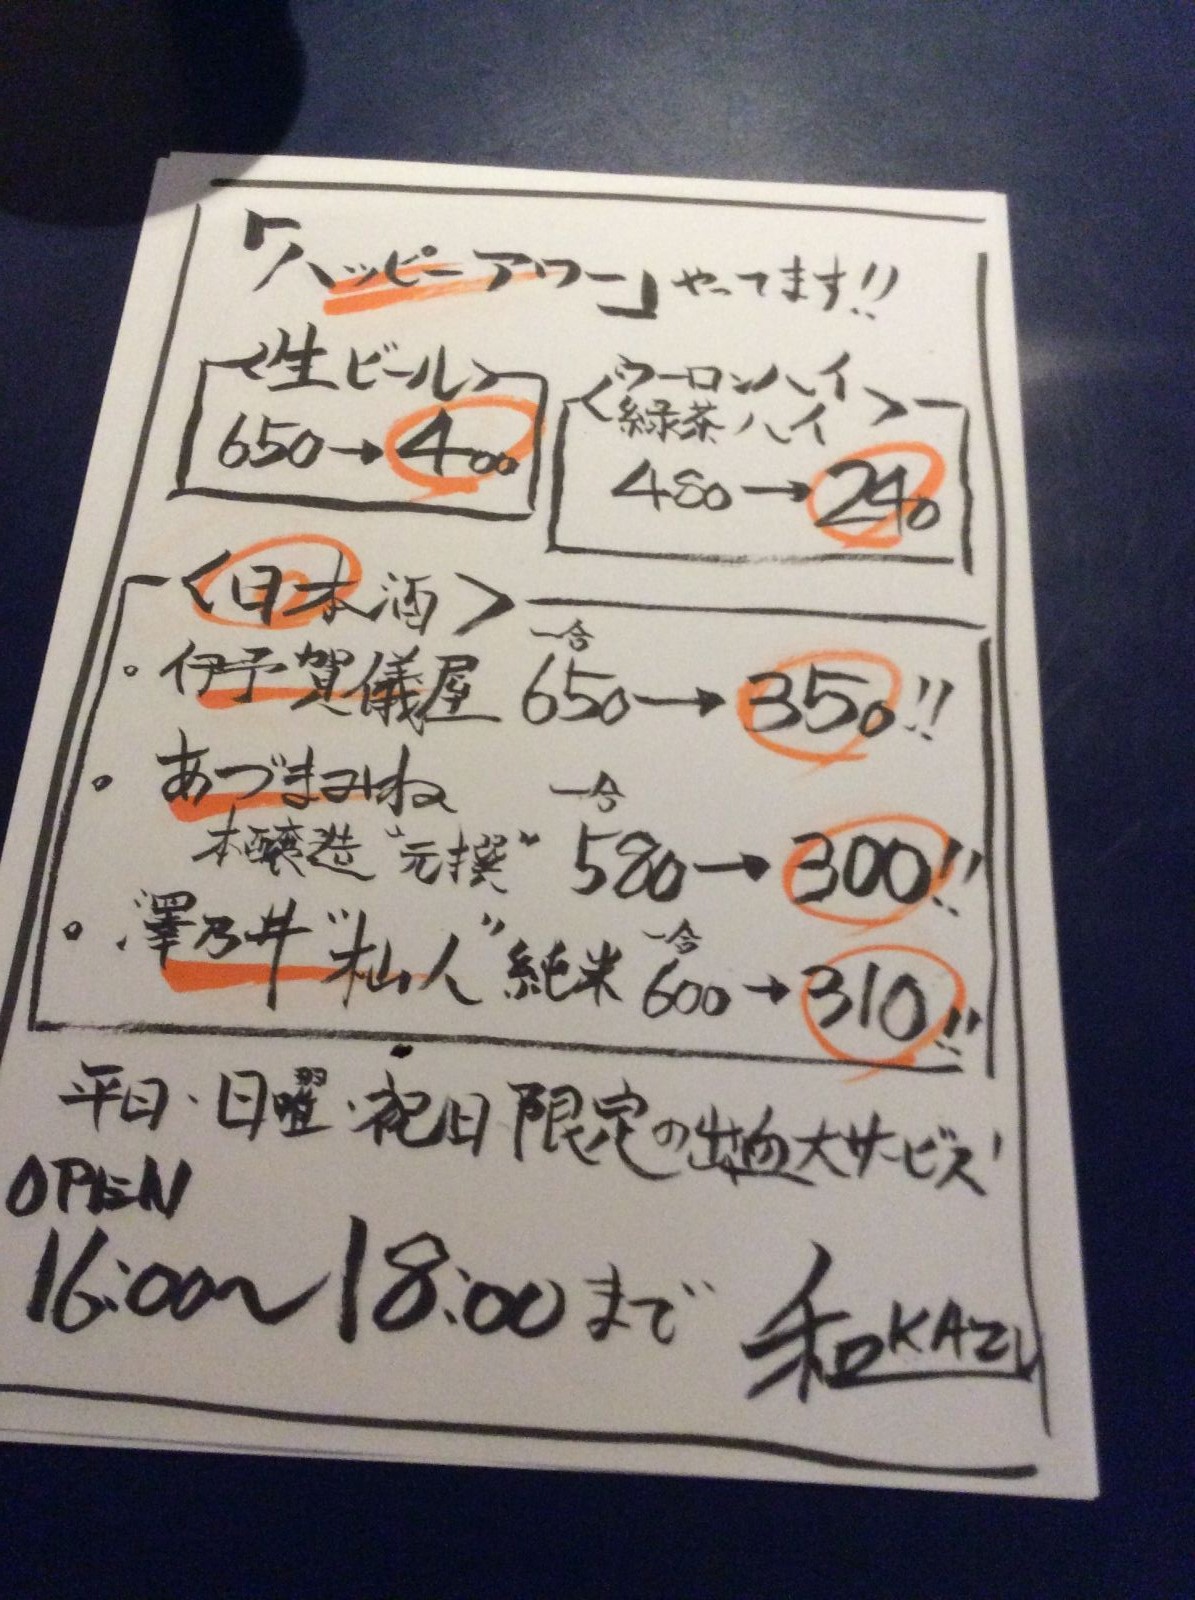 「ハッピーアワー」やってます!!
〈生ビール〉
650→400
〈ウーロンハイ
緑茶ハイ〉
480→240
〈日本酒〉
・伊予賀儀屋 一合 650→350!!
・あづまみね
本醸造"元撰" 一合 580→300!!
・澤乃井"杣人"純米 一合 600→310!!
平日・日曜・祝日限定の出血大サービス!
OPEN
16:00〜18:00まで
和KAZU